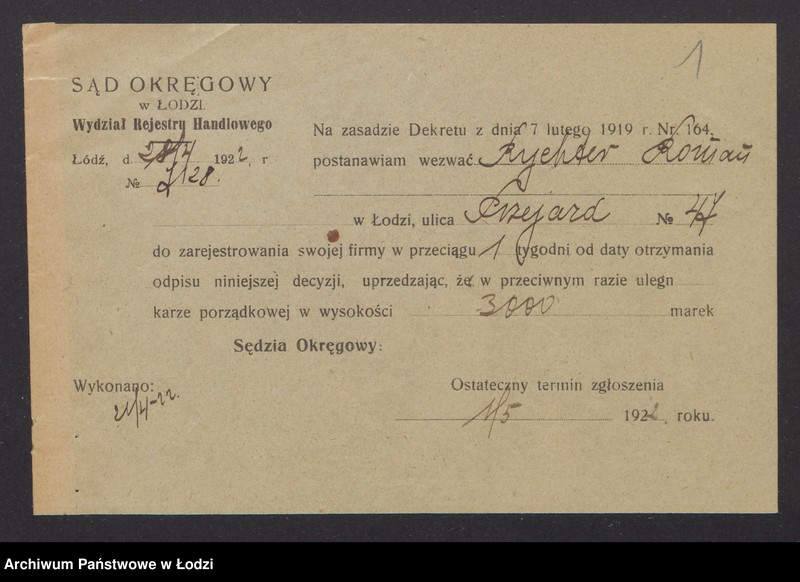 1
SĄD OKRĘGOWY
w ŁODZI.
Wydział Rejestru Handlowego
Łódź, d. 1922, r
№ 28.
Na zasadzie Dekretu z dnia 7 lutego 1919 r. Nr. 164.
postanawiam wezwać Rychter Roman
w Łodzi, ulica Przejazd № 47
do zarejestrowania swojej firmy w przeciągu 1 tygodni od daty otrzymania
odpisu niniejszej decyzji, uprzedzając, że w przeciwnym razie ulegn
karze porządkowej w wysokości 3000 marek
Sędzia Okręgowy:
Wykonano:
21/4-22.
Ostateczny termin zgłoszenia
1/5 1922 roku.
Archiwum Państwowe w Łodzi